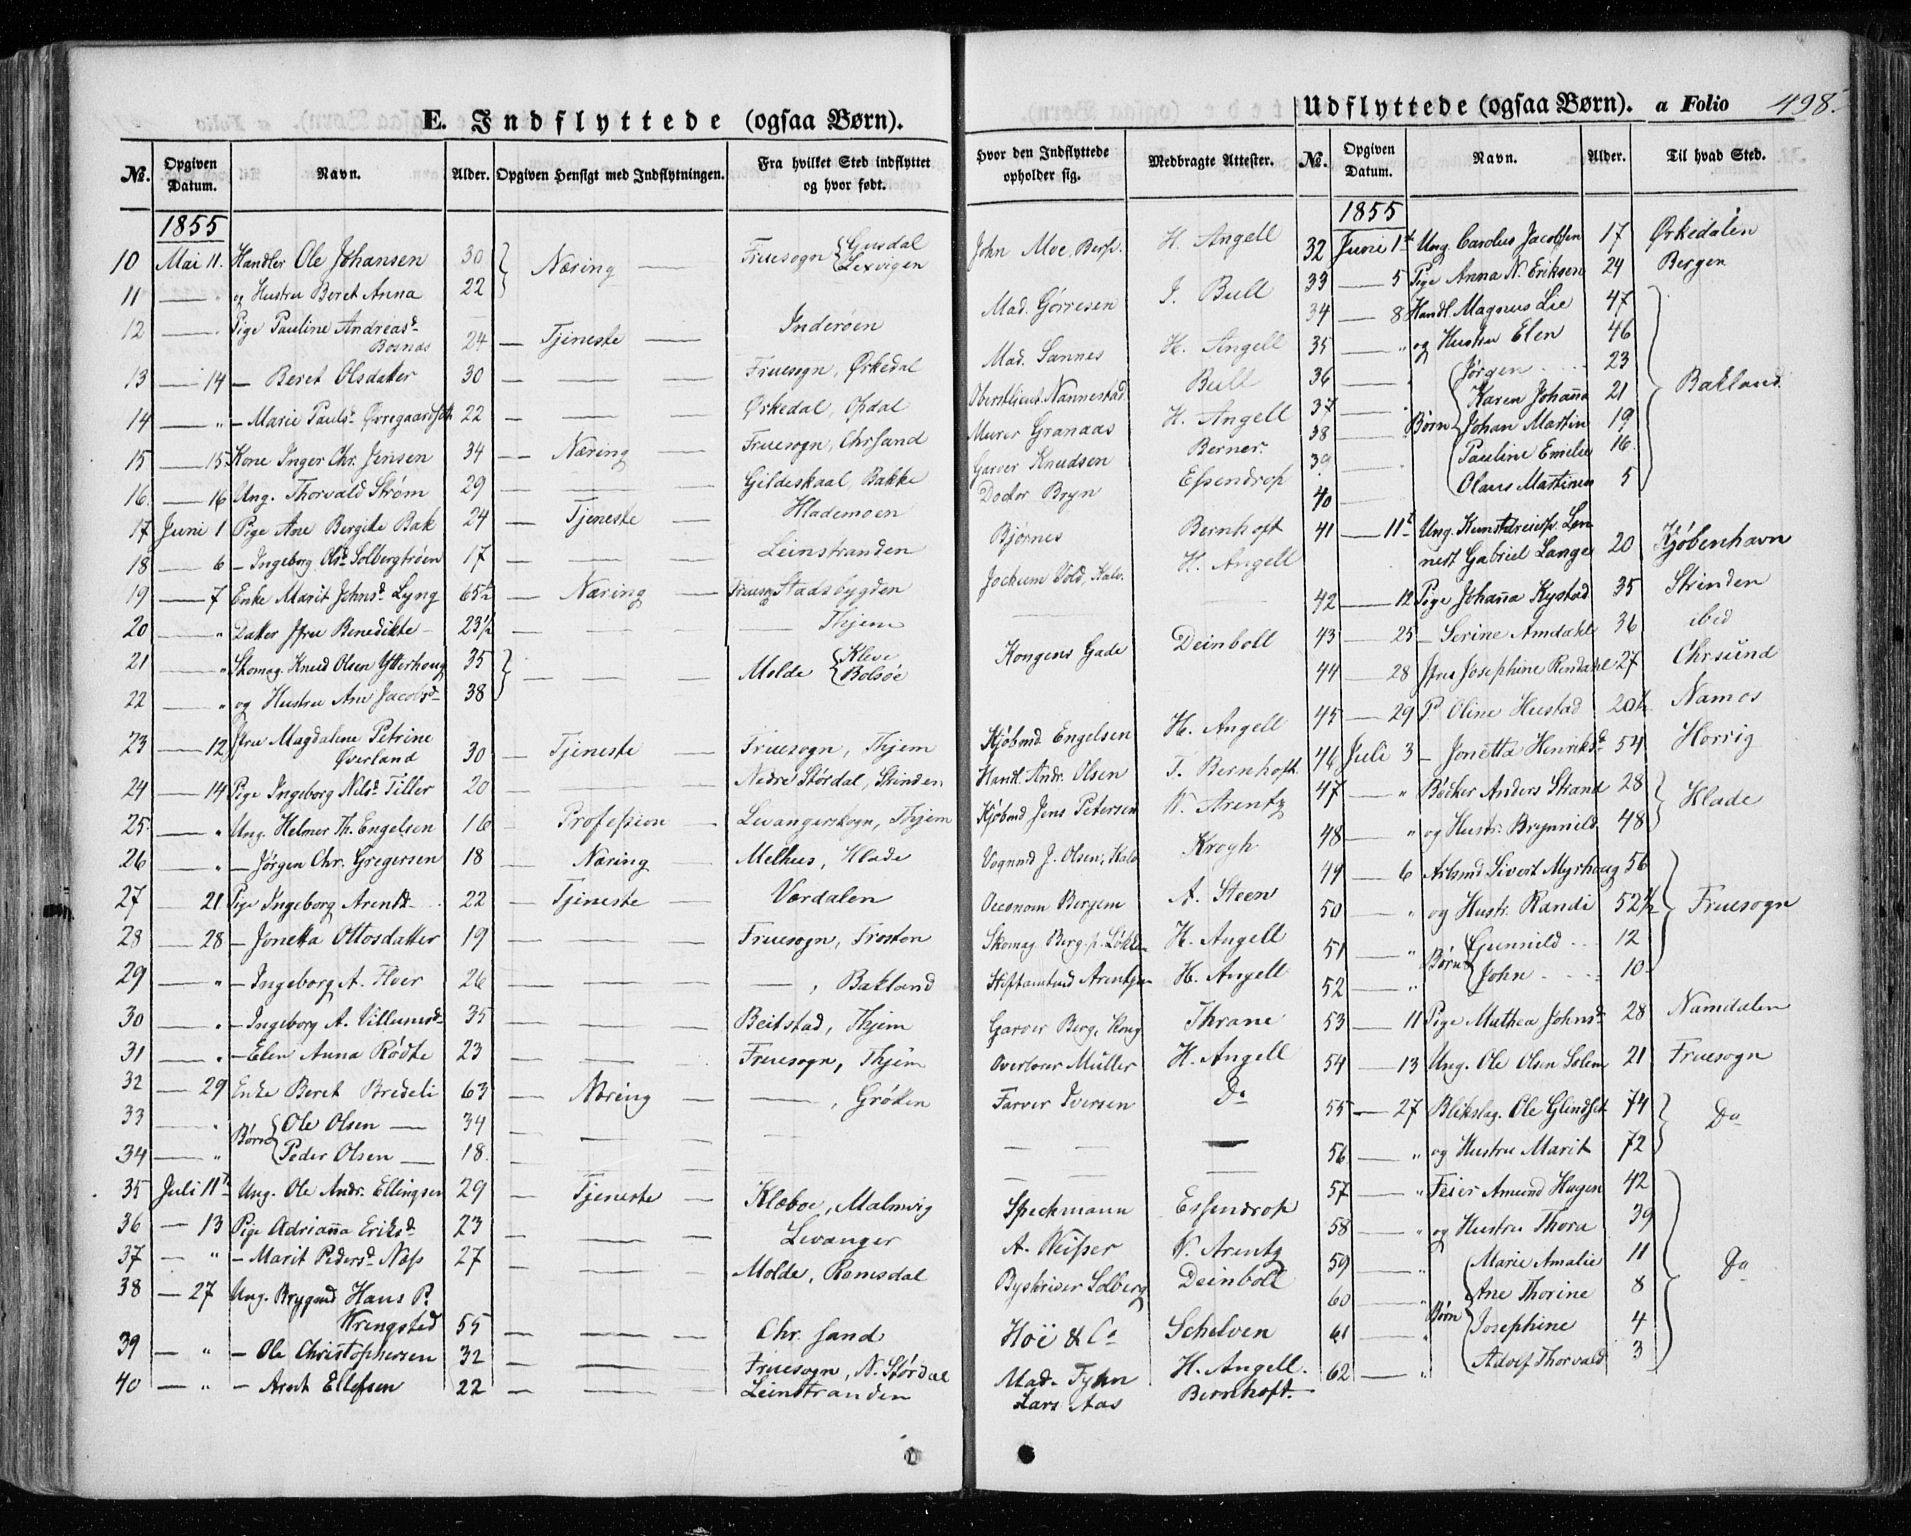 E. Indflyttede (ogsaa Børn).
No. Opgiven Datum. Navn. Alder. Opgiven Hensigt med Indflytningen. Fra hvilket Sted indflyttet og hvor født. Hvor den Indflyttede opholder sig. Medbragte Attester.
1855
10 Mai 11. Handler Ole Johansen 30 Næring — Fruesogn Lexvigen John Moe, H. Angell
11 — og Hustru Beret Anna 22
12 — Pige Pauline Andreasd. 24 — Tjeneste — Inderøen Mad. Görresen J. Bull
13 — 14 — Beret Olsdatter 30 — — — Fruesogn, Ørkedal Mad. Sannes H. Angell
14 — " — Marie Paulsd. 22 — — — Ørkedal, Opdal Oberstlieut. Nannestad Bull
15 — 15 Kone Inger Chr. Jensen 34 — Næring — Fruesogn, Chrsand Murer Granaas H. Angell
16 — 16 Ung. Thorvald Strøm 29 — — — Gildeskaal Bakke Garver Knudsen Berner
17 Juni 1 Pige Ane Bergite Bak 24 — Tjeneste — Hlademoen Doctor Bryn Essendrop
18 — 6 — Ingeborg Olsd. Solbergtrøen 17 — — — Leinstranden Bjørnes Bernhoft
19 — 7 Enke Marit Johnsd. Lyng 65½ — Næring — Fruesogn Stadsbygden Jochum Vold, Kalv. H. Angell
20 — " Datter Jfru Benedikte 23½ — — — Thjem — —
21 — " Skomag. Knud Olsen Ytterhoug 35 — — — Molde Kleve Bolsøe Kongens Gade Deinboll
22 — " og Hustru Ane Jacobsd. 38
23 — 12 Jfru Magdalene Petrine Øverland 30 — Tjeneste — Fruesogn, Thjem Kjøbmd Engelsen H. Angell
24 — 14 Pige Ingeborg Nilsd. Tiller 20 — — — Nedre Størdal, Strinden Handl. Andr. Olsen T. Bernhoft
25 — " Ung. Helmer Th. Engelsen 16 — Profession — Levangerskogn, Thjem Kjøbmd Jens Petersen N. Arentz
26 — " — Jørgen Chr. Gregersen 18 — Næring — Melhus, Hlade Vognmd J. Olsen, Kalv Krogh
27 — 21 Pige Ingeborg Arentsd. 22 — Tjeneste — Værdalen Oeconom Bergem A. Steen
28 — 28 — Jonetta Ottosdatter 19 — — — Fruesogn, Frosten Skomag. Berg, p. Løkken H. Angell
29 — " — Ingeborg A. Hver 26 — — — —, Bakland Stiftamtmd Arentzen H. Angell
30 — " — Ingeborg A. Villumsd. 35 — — — Beitstad, Thjem Garver Berg, Kong Thrane
31 — " — Elen Anna Rødte 23 — — — Fruesogn, Thjem Overlærer Müller H. Angell
32 — 29 Enke Beret Bredeli 63 — Næring — —, Grøten Farver Iversen Do
33 — " Børn Ole Olsen — 34 — — — — — —
34 — " Peder Olsen — 18 — — — — — —
35 Juli 11t Ung. Ole Andr. Ellingsen 29 — Tjeneste — Klæboe, Malmvig Speckmann Essendrop
36 — 13 Pige Adriana Eriksd. 23 — — — Levanger A. Weisser N. Arentz
37 — " — Marit Pedersd. Næss 27 — — — Molde, Romsdal Byskriver Solberg Deinboll
38 — 27 Ung. Brygmd Hans P. Wrengsted 55 — — — Chr. sand Høi & Co Schelven
39 — " — Ole Christophersen 32 — — — Fruesogn, N. Størdal Mad. Tyhn H. Angell.
40 — " — Arnt Ellefsen 22 — — — Leinstranden Lars Aas Bernhoft.
Udflyttede (ogsaa Børn). a Folio 498.
No. Opgiven Datum. Navn. Alder. Til hvad Sted.
1855
32 Juni 1st Ung. Carolus Jacobsen 17 Ørkedalen
33 — 5 Pige Anna N. Eriksen 24 Bergen
34 — 8 Handl. Magnus Lie 47 Bakland
35 — " og Hustru Elen 46
36 — " Jørgen 23
37 — " Karen Johanna 21
38 — Børn Johan Martin 19
39 — " Pauline Emilie 16
40 — Olaus Martinus 5
41 — 11t Ung. Gabriel Lange 20 Kjøbenhavn
42 — 12 Pige Johanna Kystad 35 Strinden
43 — 25 — Serine Amdahl 36 ibid
44 — 28 Jfru Josephine Rendahl 27 Chrsund
45 — 29 P. Oline Hustad 20½ Namos
46 Juli 3 — Jonetta Henriksd. 54 Horrig
47 — " Bødker Anders Strand 28 Hlade
48 — " og Hustr. Brynnild 48
49 — 6 Arbmd Sivert Myrhoug 56 Fruesogn
50 — " og Hustr. Randi 52½
51 — " Børn Gunnild 12
52 — " John 10
53 — 11 Pige Mathea Johnsd. 28 Namdalen
54 — 13 Ung. Ole Olsen Solem 21 Fruesogn
55 — 27 Blikslag. Ole Glindset 74 Do
56 — " og Hustru Marit 72
57 — " Feier Amund Hagen 42 Do
58 — " og Hustru Thora 39
59 — " Marie Amalie 11
60 — " Børn Ane Thorine 8
61 — " Josephine 4
62 — " Adolf Thorvald 3